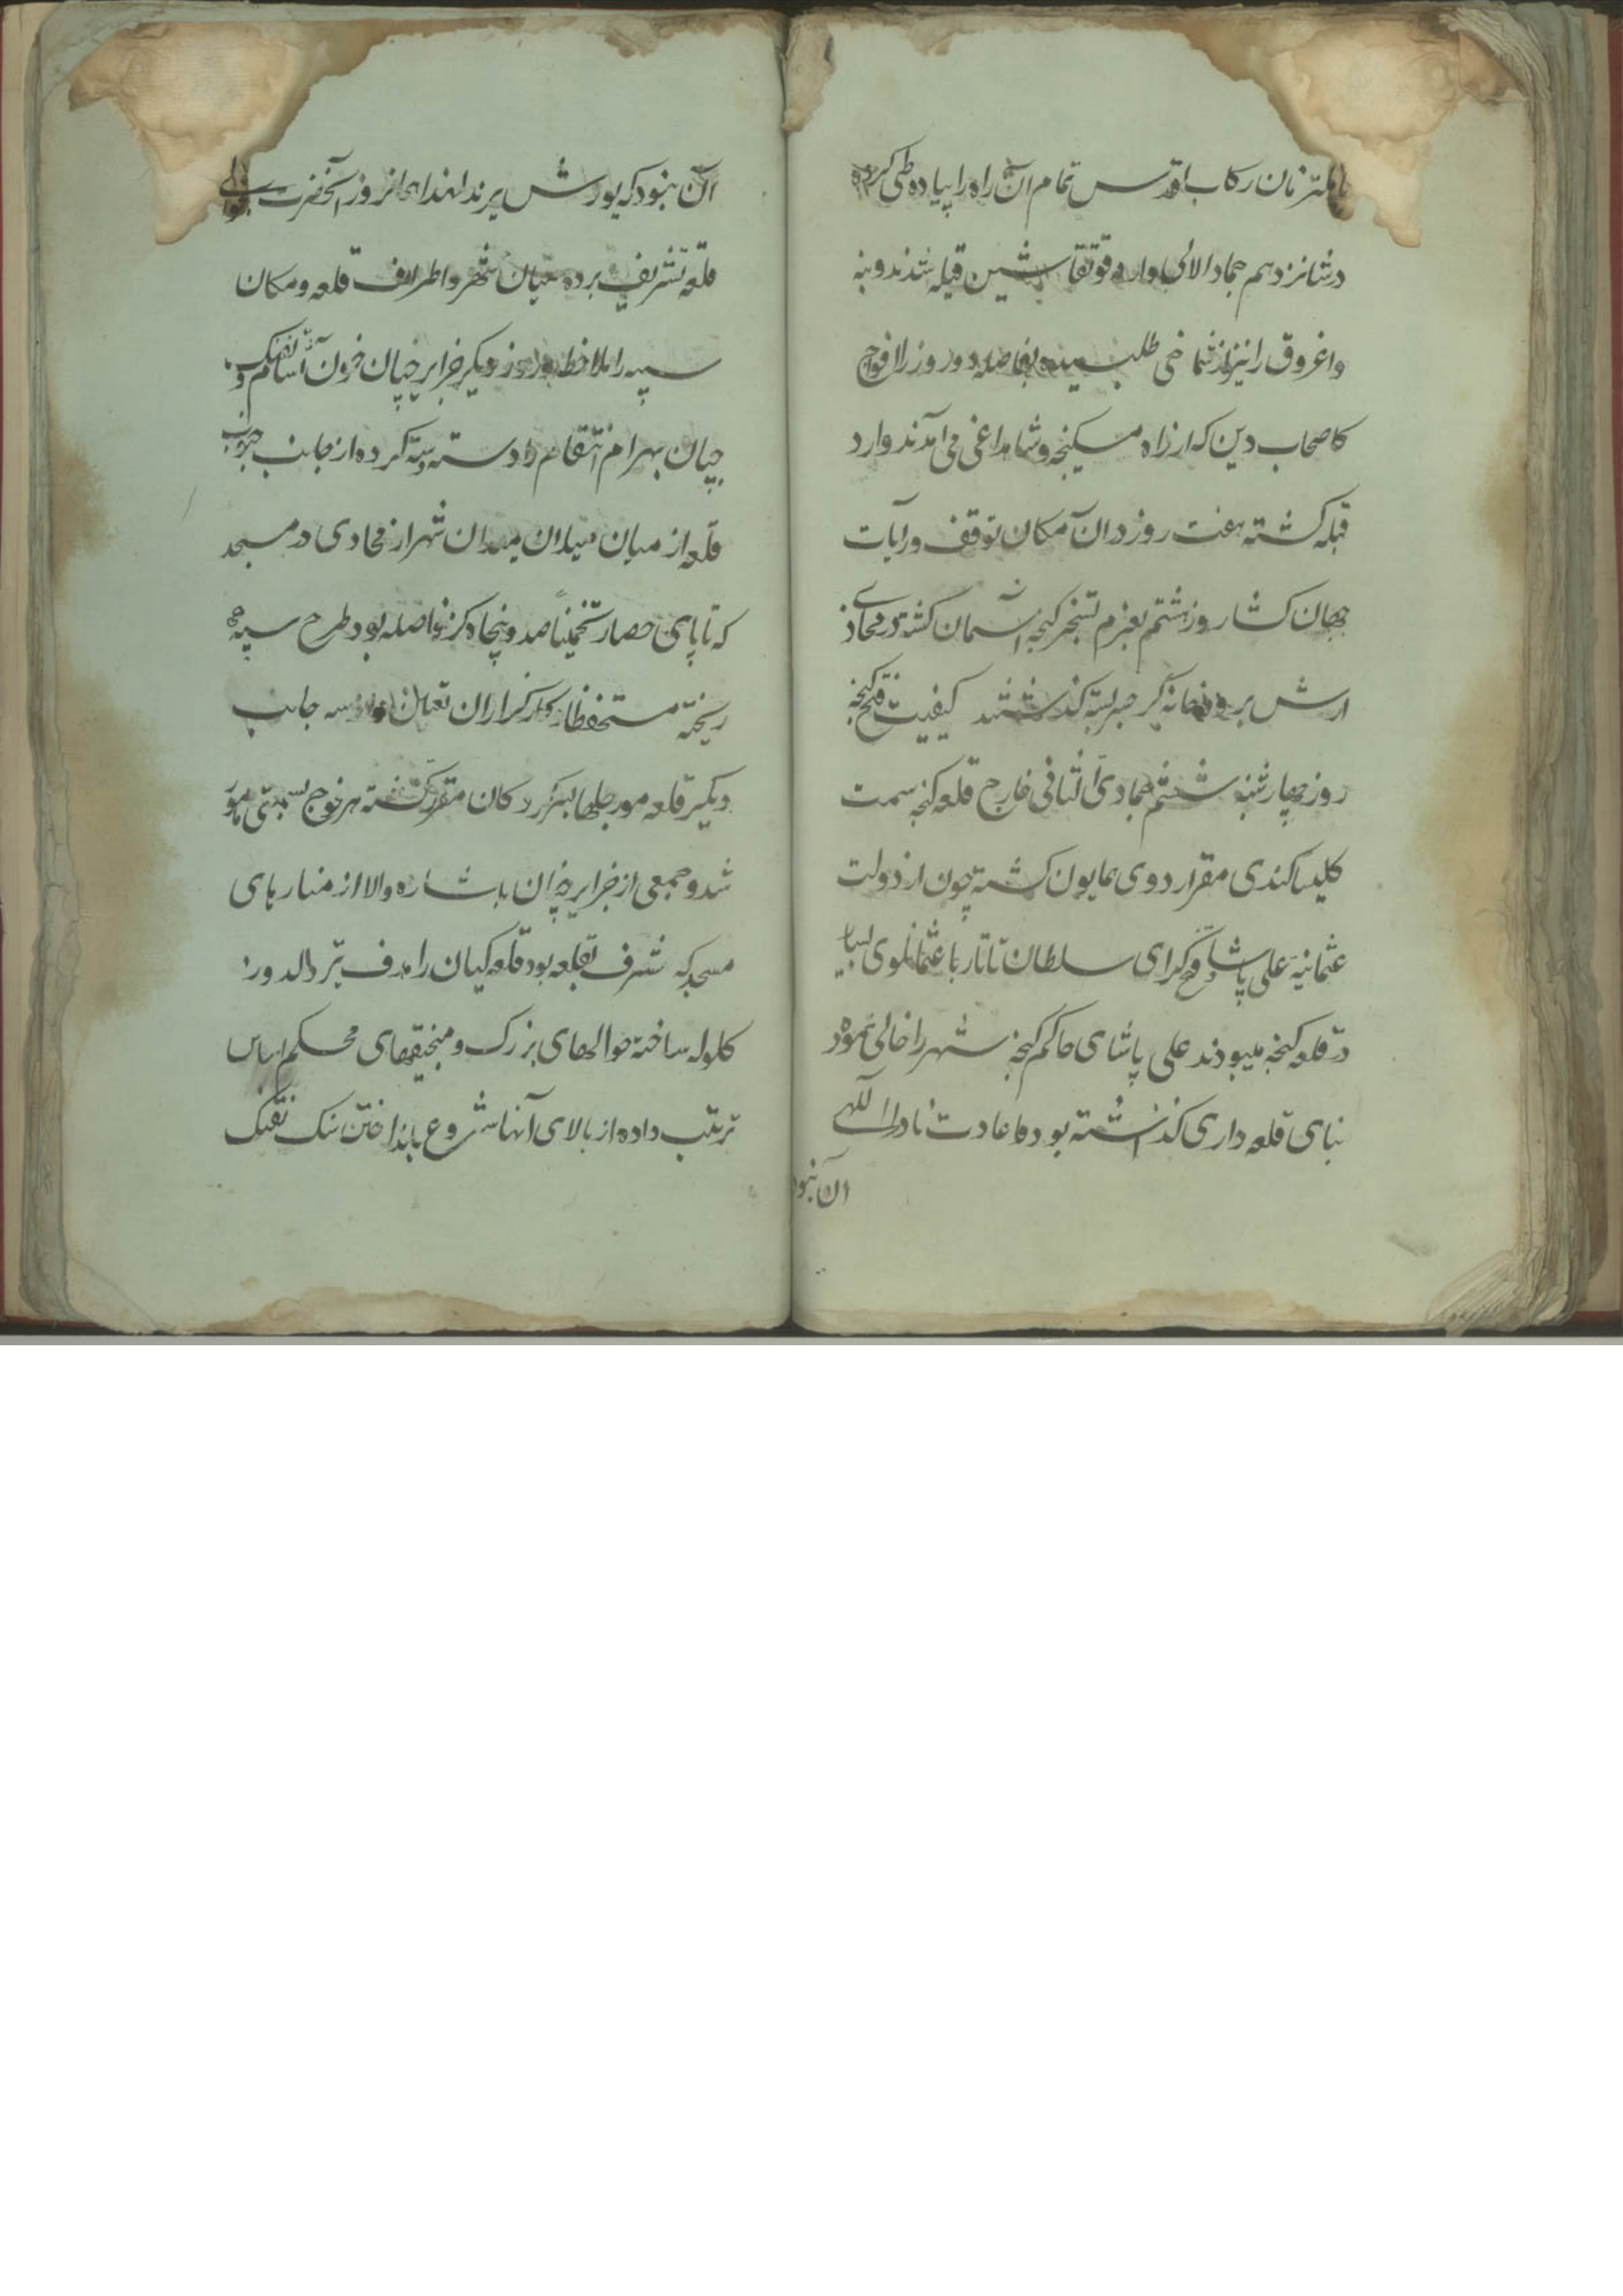 با ملتزمان رکاب اقدس تمام آن راه را پیاده طی کرده
در شانزدهم جماد الاولی وارد قوتقاشین قبله شدند و بنه
و اغروق را نیز از شماخی طلبیده بفاصله دو روز افواج
که اصحاب دین که از راه مسکنجه و شاه داغی می آمدند وارد
قبله کشته هفت روز در آن مکان توقف و رایات
جهان کشا روز هشتم بعزم تسخیر کنجه آسمان کشته در محاذی
ارش بر رودخانه کر جسر بسته کذشتند کیفیت فتح کنجه
روز چهارشنبه ششم جمادی الثانی خارج قلعه کنجه سمت
کلیسا کندی مقر اردوی همایون کشته چون از دولت
عثمانیه علی پاشا و فتح کرای سلطان تاتار با عثمانلوی بسیار
در قلعه کنجه میبودند علی پاشای حاکم کنجه شهر را خالی نموده
بنای قلعه داری کذاشته بود و عادت نادر
آن نبود
آن نبود که یورش برند لهذا همانروز آنحضرت بحوالی
قلعه تشریف برده میان شهر و اطراف قلعه و مکان
سیبه را ملاحظه و روز دیکر جزایرچیان خون آشام و تفنک
چیان بهرام انتقام را دسته دسته کرده از جانب جنوب
قلعه از میان میدان شهر از محاذی در مسجد
که تا پای حصار تخمینا صد و پنجاه کز فاصله بود طرح سیبه
ریخته مستحفظان و کارکزاران تعیین و از سه جانب
دیکر قلعه مورچلها بسرکردکان مقرر کشته هر فوج بسمتی مامور
شد و جمعی از جزایرچیان باشاره والا از منارهای
مسجد که مشرف بقلعه بود قلعه کیان را هدف تیر
کلوله ساخته حوالهای بزرک و منجنیقهای محکم اساس
ترتیب داده از بالای آنها شروع بانداختن سنک تفنک